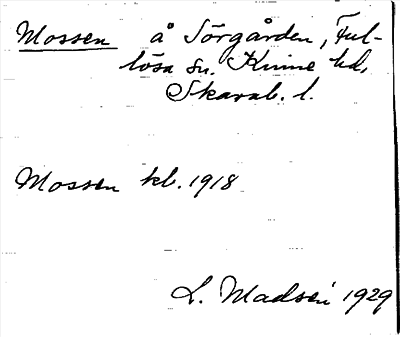 Mossen å Sörgården, Ful-
lösa sn. Kinne hd,
Skarab. l.
Mossen kl. 1918
L. Madsén 1929